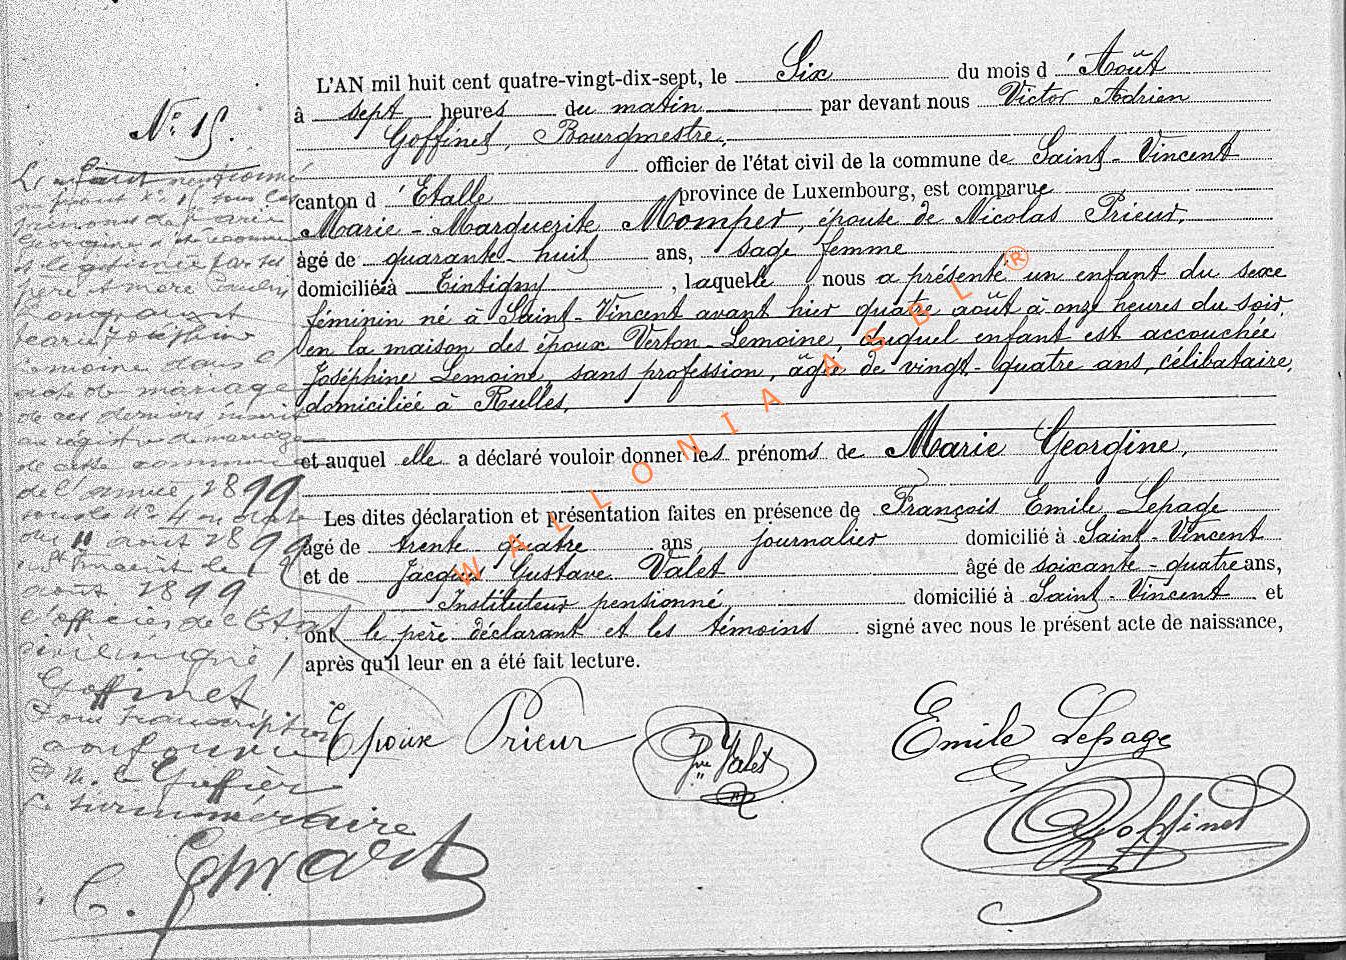 N° 15.
L'enfant mentionné
prénoms de Marie
Georgine a été reconnu
et légitimé par ses
père et mère
Joséphine
Lemoine dans
acte de mariage
de ces derniers inscrit
au registre de mariage
de cette commune
de l'année 1899
sous le n° 4 en date
août 1899
St Vincent le
août 1899
l'officier de l'Etat
civil signé /
Goffinet
Pour transcription
conforme
le Greffier
surnuméraire
L'AN mil huit cent quatre-vingt-dix-sept, le Six du mois d'Août
à sept heures du matin par devant nous Victor Adrien
Goffinet, Bourgmestre,
officier de l'état civil de la commune de Saint-Vincent
canton d'Etalle province de Luxembourg, est comparue
Marie-Marguerite Momper, épouse de Nicolas Prieur,
âgé de quarante-huit ans, sage femme
domiciliée à Tintigny, laquelle nous a présenté un enfant du sexe
féminin né à Saint-Vincent avant hier quatre août à onze heures du soir,
en la maison des époux Verton-Lemoine, duquel enfant est accouchée
Joséphine Lemoine, sans profession, âgée de vingt-quatre ans, célibataire,
domiciliée à Rulles,
et auquel elle a déclaré vouloir donner les prénoms de Marie Georgine,
Les dites déclaration et présentation faites en présence de François Emile Lepage
âgé de trente-quatre ans, journalier domicilié à Saint-Vincent
et de Jacques Gustave Valet âgé de soixante-quatre ans,
Instituteur pensionné, domicilié à Saint-Vincent et
ont le père déclarant et les témoins signé avec nous le présent acte de naissance,
après qu'il leur en a été fait lecture.
Epoux Prieur
Valet
Emile Lepage
Goffinet
WALLONIA ASBL ®